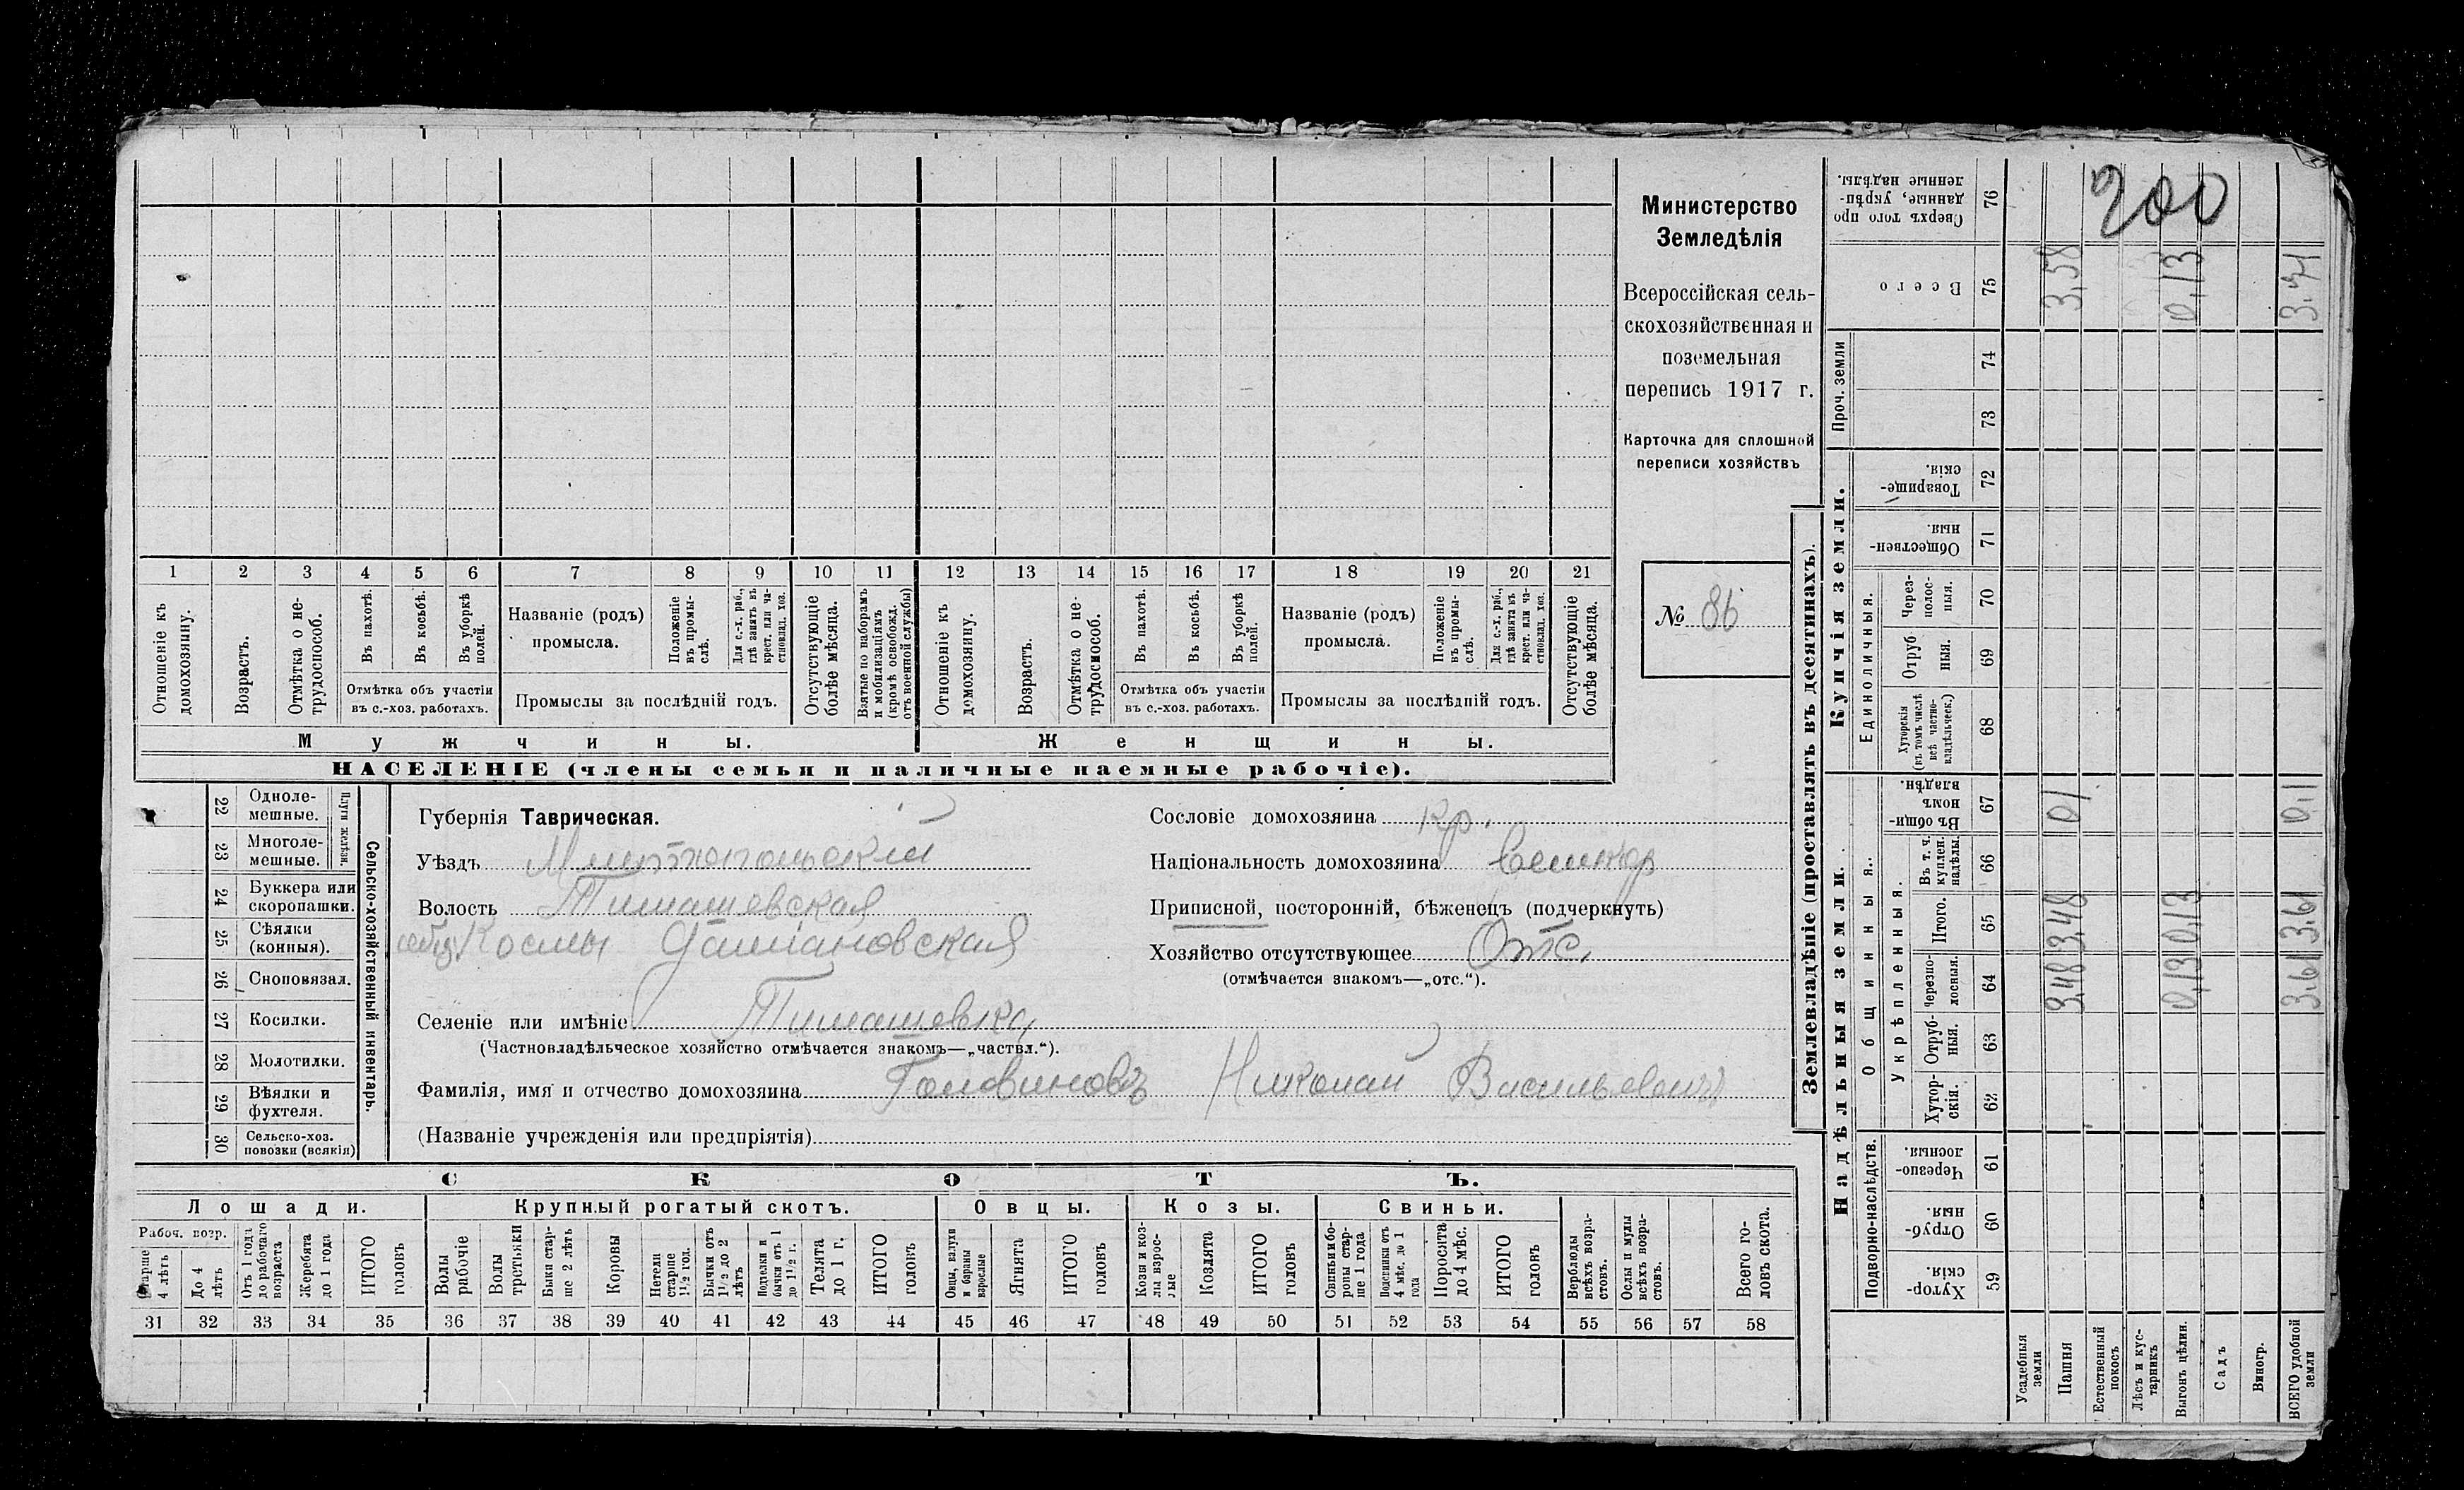 200
Министерство
Земледѣлія
Всероссійская сель-
скохозяйственная и
поземельная
перепись 1917 г.
Карточка для сплошной
переписи хозяйствъ
№ 86
1 2 3 4 5 6 7 8 9 10 11 12 13 14 15 16 17 18 19 20 21
Отношеніе къ домохозяину.
Возрастъ.
Отмѣтка о не-трудоспособ.
Въ пахотѣ.
Въ косьбѣ.
Въ уборкѣ полей.
Отмѣтка объ участіи
въ с.-хоз. работахъ.
Названіе (родъ)
промысла.
Положеніе въ промы-слѣ.
Для с.-х. раб., гдѣ занятъ въ крест. или ча-стновлад. хоз.
Промыслы за послѣдній годъ.
Отсутствующіе болѣе мѣсяца.
Взятые по наборамъ и мобилизаціямъ (кромѣ освобожд. отъ военной службы)
Отношеніе къ домохозяину.
Возрастъ.
Отмѣтка о не-трудоспособ.
Въ пахотѣ.
Въ косьбѣ.
Въ уборкѣ полей.
Отмѣтка объ участіи
въ с.-хоз. работахъ.
Названіе (родъ)
промысла.
Положеніе въ промы-слѣ.
Для с.-х. раб., гдѣ занята въ крест. или ча-стновлад. хоз.
Промыслы за послѣдній годъ.
Отсутствующіе болѣе мѣсяца.
Мужчины.
Женщины.
НАСЕЛЕНІЕ (члены семьи и наличные наемные рабочіе).
22 Одноле-мешные.
23 Многоле-мешные.
Плуги желѣзн.
24 Буккера или скоропашки.
25 Сѣялки (конныя).
26 Сноповязал.
27 Косилки.
28 Молотилки.
29 Вѣялки и фухтеля.
30 Сельско-хоз. повозки (всякія)
Сельско-хозяйственный инвентарь.
Губернія Таврическая.
Уѣздъ Мелитопольскій
Волость Тимашевская
Космы Даміановская
Селеніе или имѣніе Тимашевка
(Частновладѣльческое хозяйство отмѣчается знакомъ—„частвл.“).
Фамилія, имя и отчество домохозяина Головиновъ Николай Васильевичъ
(Названіе учрежденія или предпріятія)
Сословіе домохозяина кр.
Національность домохозяина Великор
Приписной, посторонній, бѣженецъ (подчеркнуть)
Хозяйство отсутствующее Отс.
(отмѣчается знакомъ—„отс.“).
СКОТЪ.
Лошади.
Крупный рогатый скотъ.
Овцы.
Козы.
Свиньи.
Рабоч. возр.
Старше 4 лѣтъ
До 4 лѣтъ
Отъ 1 года до рабочаго возраста
Жеребята до 1 года
ИТОГО головъ
Волы рабочіе
Волы третьяки
Быки стар-ше 2 лѣтъ
Коровы
Нетели старше 1½ год.
Бычки отъ 1½ до 2 лѣтъ
Подтелки и бычки отъ 1 до 1½ г.
Телята до 1 г.
ИТОГО головъ
Овцы, валухи и бараны взрослые
Ягнята
ИТОГО головъ
Козы и коз-лы взрос-лые
Козлята
ИТОГО головъ
Свиньи и бо-ровы стар-ше 1 года
Подсвинки отъ 4 мѣс. до 1 года
Поросята до 4 мѣс.
ИТОГО головъ
Верблюды всѣхъ возра-стовъ.
Ослы и мулы всѣхъ возра-стовъ.
Всего го-ловъ скота.
31 32 33 34 35 36 37 38 39 40 41 42 43 44 45 46 47 48 49 50 51 52 53 54 55 56 57 58
Землевладѣніе (проставлять въ десятинахъ).
Надѣльныя земли.
Купчія земли.
Проч. земли
Подворно-наслѣдств.
Общинныя.
Укрѣпленныя.
Единоличныя.
Сверхъ того про даныe, укрѣп-ленные надѣлы. 76
Всего 75 3,58 0,13 3.71
74
73
Товарище-скія. 72
Обществен-ныя. 71
Через-полос-ныя. 70
Отруб ныя. 69
Хуторскія (въ томъ числѣ всѣ частно-владѣльческ.) 68
Въ общи-номъ владѣн. 67 0,1 0,1
Въ т. ч. куплен. надѣлы. 66
Итого. 65 3,48 0,13 3.61
Черезпо-лосныя. 64 3,48 0,13 3.61
Отруб-ныя. 63
Хутор-скія. 62
Черезпо-лосныя. 61
Отруб-ныя. 60
Хутор-скія. 59
Усадебныя земли
Пашня
Естественный покосъ
Лѣсъ и кус-тарникъ
Выгонъ цѣлин.
Садъ
Виногр.
ВСЕГО удобной земли